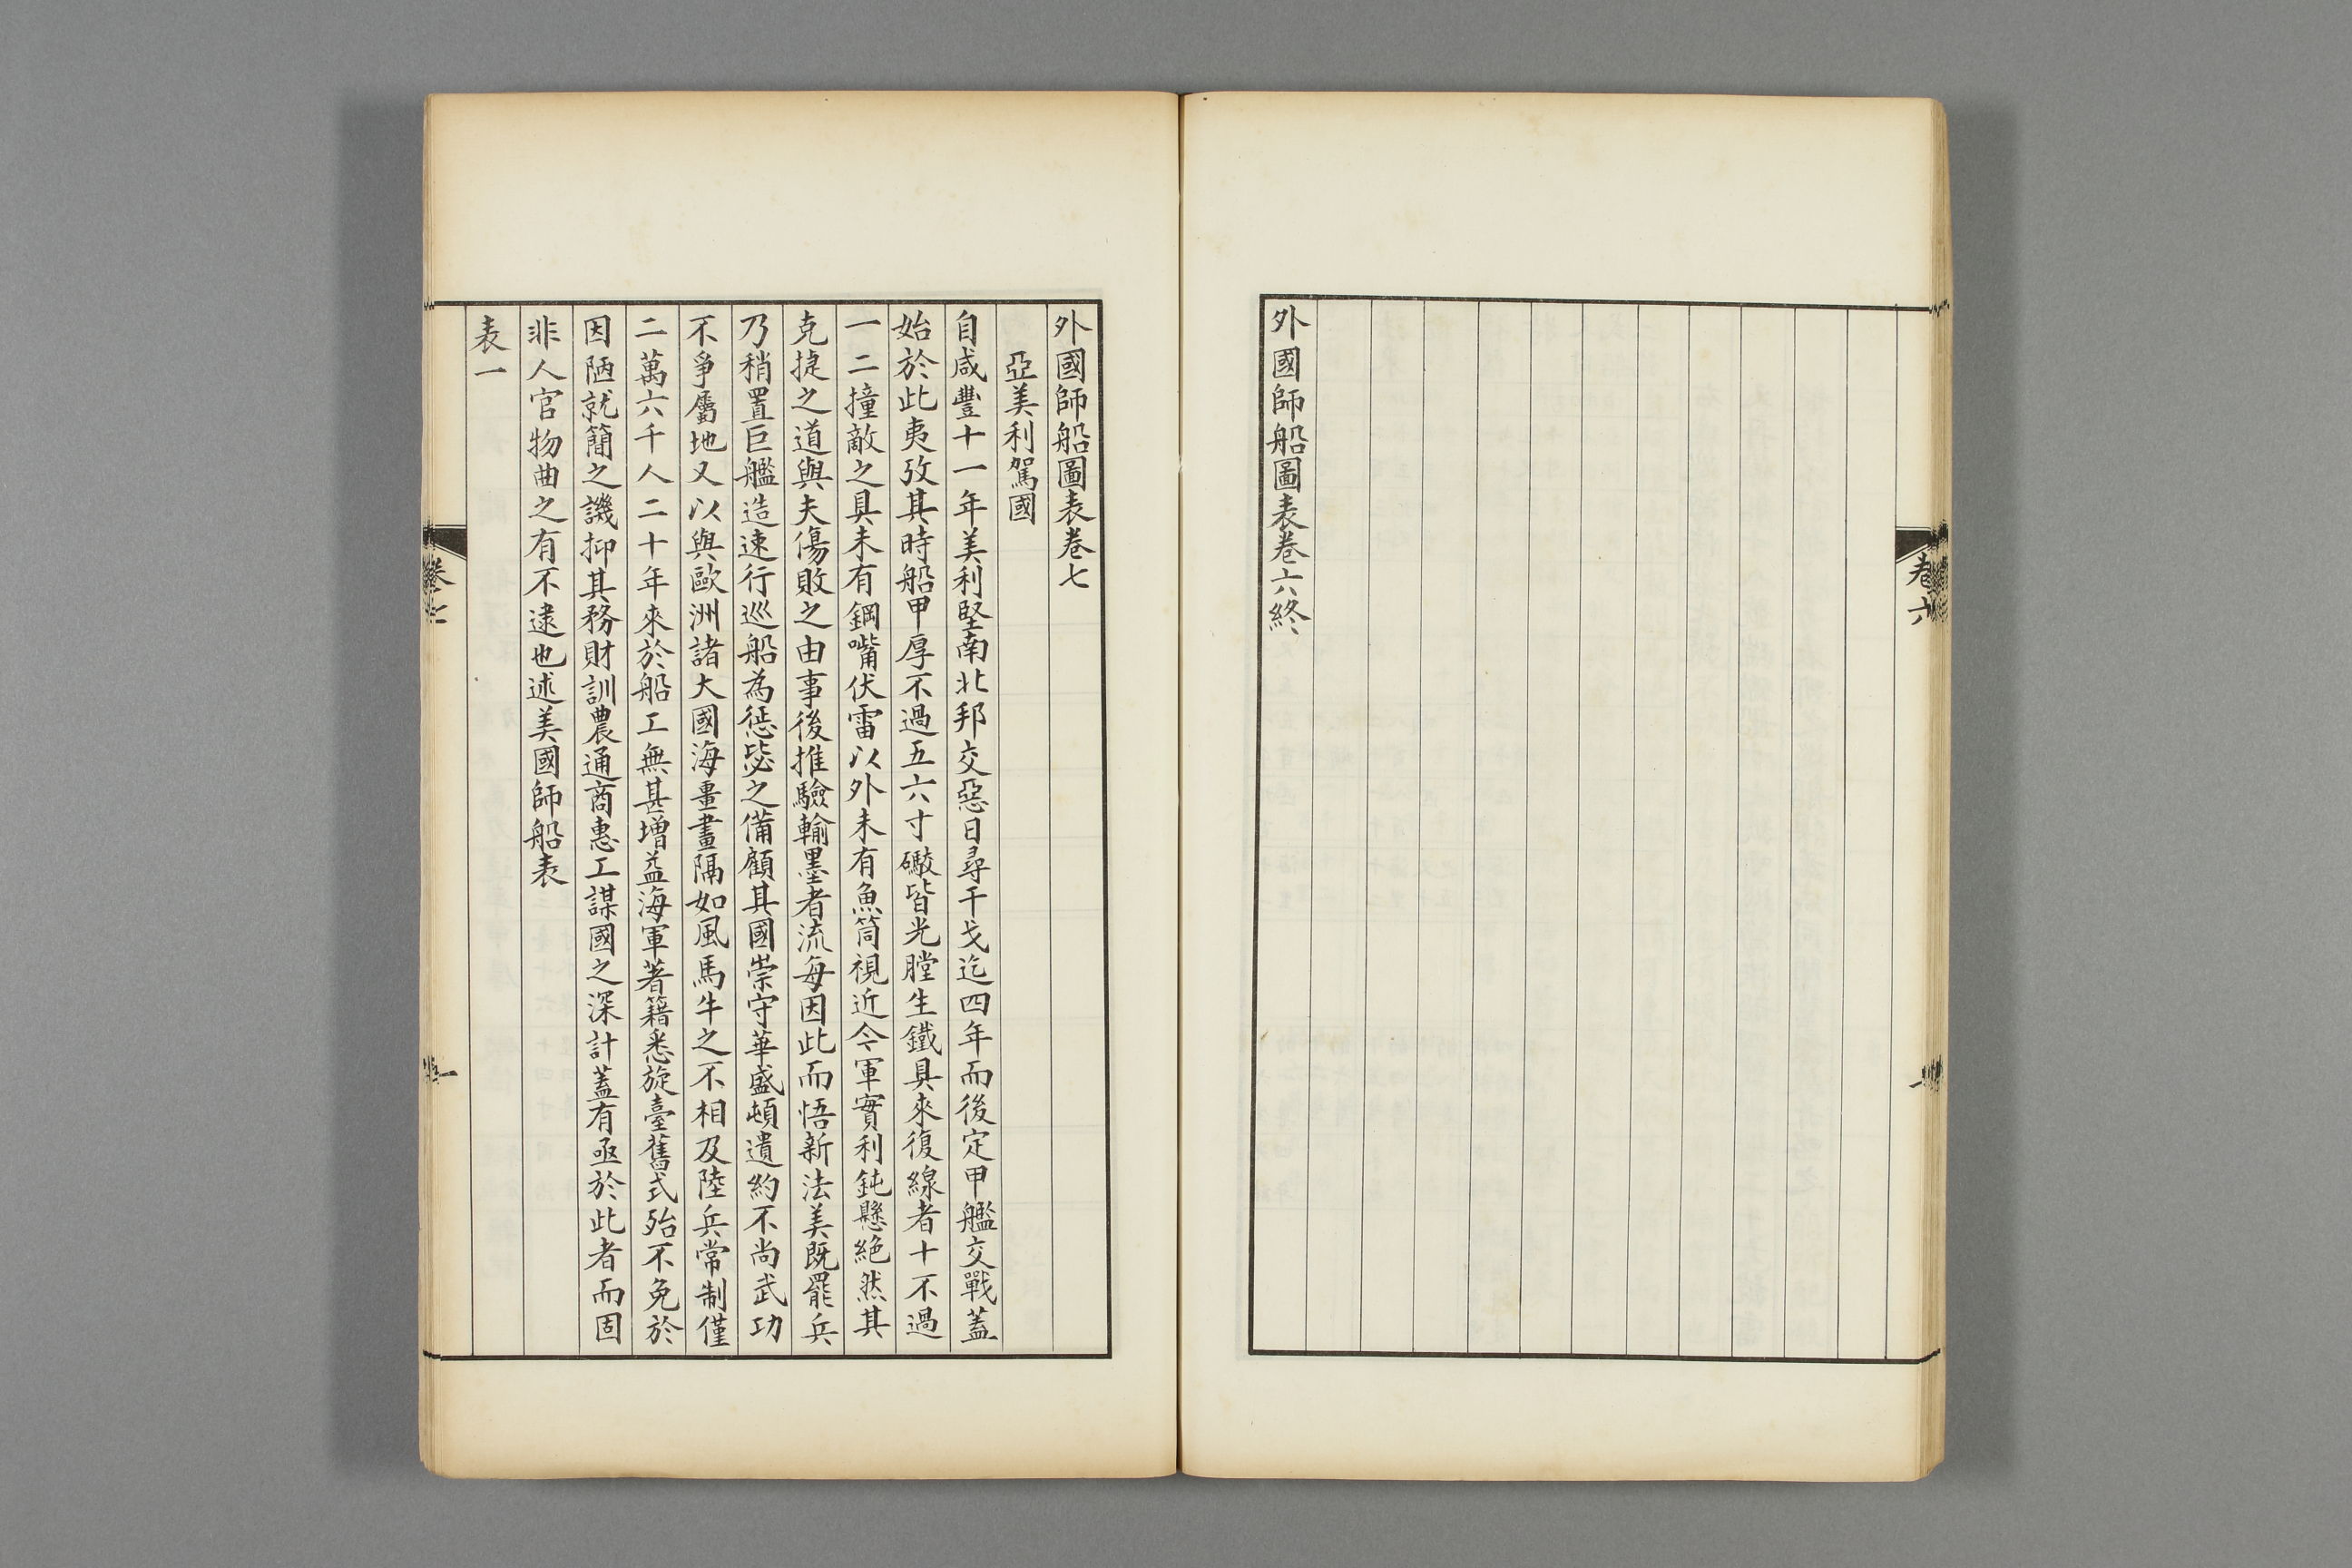 卷六
外國師船圖表卷六終
外國師船圖表卷七
亞美利駕國
自咸豐十一年美利堅南北邦交惡日尋干戈迄四年而後定甲艦交戰蓋
始於此夷攷其時船甲厚不過五六寸礮皆光膛生鐵具來復線者十不過
一二撞敵之具未有鋼嘴伏雷以外未有魚筒視近今軍實利鈍懸絕然其
克捷之道與夫傷敗之由事後推驗輸墨者流每因此而悟新法美既罷兵
乃稍置巨艦造速行巡船為懲毖之備顧其國崇守華盛頓遺約不尚武功
不爭屬地又以與歐洲諸大國海畺畫隔如風馬牛之不相及陸兵常制僅
二萬六千人二十年來於船工無甚增益海軍著籍悉旋臺舊式殆不免於
因陋就簡之譏抑其務財訓農通商惠工謀國之深計蓋有亟於此者而固
非人官物曲之有不逮也述美國師船表
表一
卷七
一